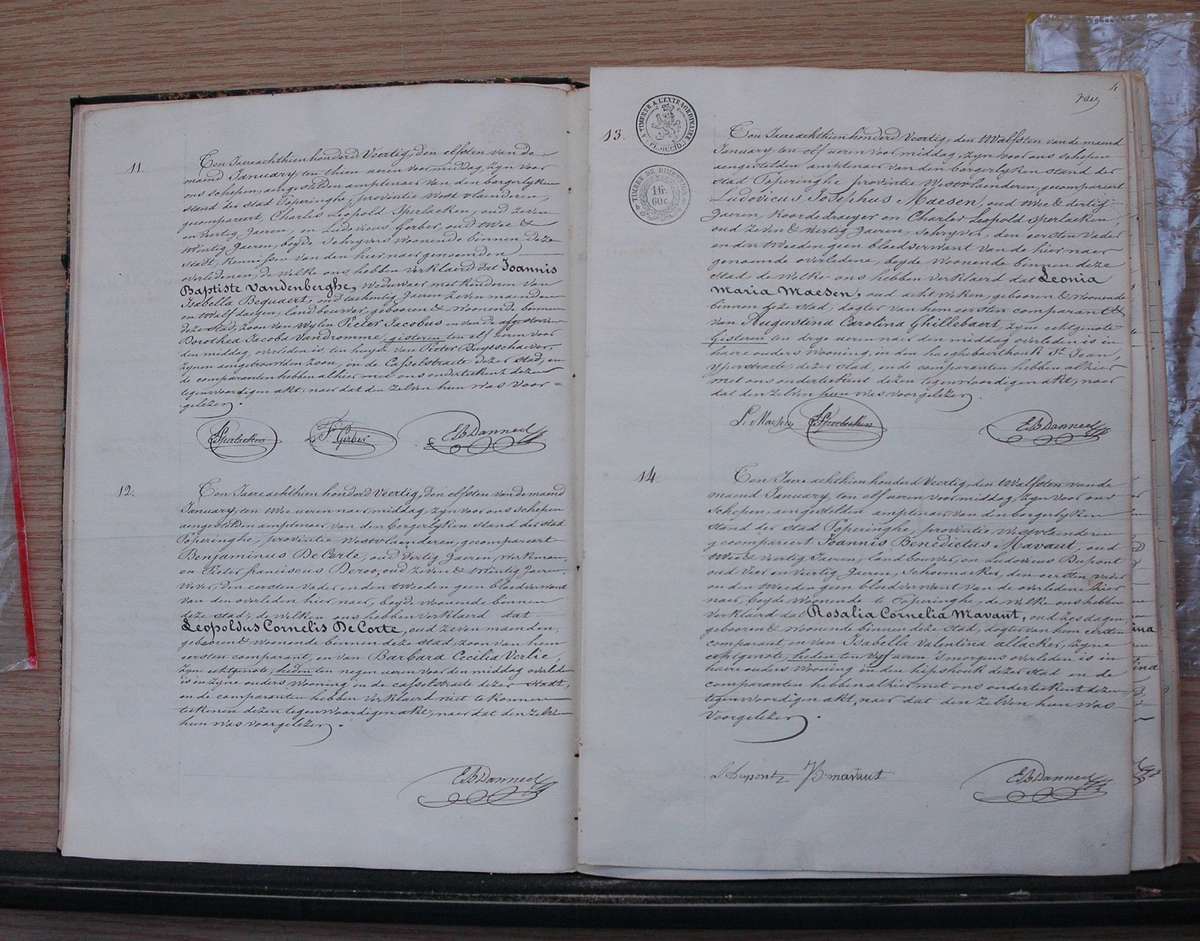 11.
Ten Jaere achthien honderd Veertig, den elfsten van de
maend January, ten thien ueren voor middag, zyn voor
ons schepen, aengestelden amptenaer van den borgerlyken
stand der stad Poperinghe, provintie West vlaenderen,
gecompareert, Charles Leopold Sperlaeken, oud zeven
en Veertig Jaeren, en Ludovicus Gerber oud Twee &
Twintig Jaeren, beyde Schryvers Woonende binnen deze
stad, Kennissen van den hier naer genoemden
overledenen, de welke ons hebben verklaerd dat Joannis
Baptiste Vandenberghe, Weduwaer met Kinderen van
Isabella Bequaert, oud tachentig Jaeren zeven maenden
en twalf daegen, landbouwer, gebooren & Woonende binnen
deze stad, zoon van Wylen Pieter Jacobus en van de
Dorothea Jacoba Vandromme, gisteren ten elf uren voor
den middag overleden is, ten huyze van Pieter
zynen aengetrouwden Zoon, in de Casselstraete dezer stad, en
de comparanten hebben alhier met ons onderteekent dezen
tegenwoordigen akt, naer dat den zelven hun Was voor-
gelezen.
Sperlaeken F Gerber E B Danneel
12.
Ten Jaere achthien honderd Veertig, den elfsten van de maend
January, ten twee uren naer middag, zyn voor ons schepen
aengestelden amptenaer van den borgerlyken stand der stad
Poperinghe, provintie Westvlaenderen, gecompareert
Benjaminus De Corte, oud Veertig Jaeren, Werkman,
en Pieter franciscus Deroo, oud Zeven & Twintig Jaeren
Wever, den eersten vader en den tweeden geen bloedverwant
van den overleden hier naer, beyde Woonend binnen
deze stad, de welken ons hebben verklaerd dat
Leopoldus Cornelis De Corte, oud zeven maenden,
gebooren & Woonende binnen deze stad, zoon van hem
eersten comparant, en van Barbara Cecilia Verlie
zyne echtgenote, heden ten negen uren van den middag overleden
is in zyne ouders Wooning in de casselstraete dezer Stadt,
en de comparanten hebben Verklaerd niet te konnen
teekenen dezen tegenwoordigen akt, naer dat den zelven
hun Was voorgelezen.
E B Danneel
4
13.
TIMBRE A L'EXTRAORDINAIRE
TIMBRE DE DIMENSION
16.
60c.
Ten Jaere achthien honderd Veertig, den Twalfsten van de maend
January, ten elf ueren voor middag, zyn voor ons schepen
aengestelden amptenaer van den borgerlyken stand der
stad Poperinghe provintie Westvlaenderen, gecompareert
Ludovicus Josephus Maesen, oud Twee & dertig
Jaeren, Koordedraeger en Charles Leopold Sperlaeken,
oud Zeven & Veertig Jaeren, schryver, den eersten Vader
en den Tweeden geen bloedverwant van de hier naer
genoemde overledene, beyde Woonende binnen deze
stad de Welke ons hebben Verklaerd dat Leonia
Maria Maesen, oud acht weken, gebooren & Woonende
binnen deze Stad, dogter van hem eersten comparant &
van Augustina Carolina Ghillebaert, zyne echtgenote
Gisteren ten drye uren naer den middag overleden is in
haere ouders Wooning, in den St Jean
straete dezer stad, en de comparanten hebben alhier
met ons onderteekent dezen tegenwoordigen akt, naer
dat den zelven hun was voorgelezen.
L. Maesen Sperlaeken E B Danneel
14.
Ten Jaere achthien honderd Veertig, den Twalfsten van de
maend January, ten elf uren voor middag, zyn voor ons
Schepen, aengestelden amptenaer van den borgerlyken
stand der Stad Poperinghe, provintie Westvlaenderen
gecompareert Joannis Benedictus Mavaut, oud
Twee & Veertig Jaeren, Landbouwer, en Ludovicus Dupont
oud Vier en veertig Jaeren, Schoenmaker, den eersten vader
en den Tweeden geen bloedverwant van de overledene hier
naer, beyde Woonende te Poperinghe, de Welke ons hebben
verklaerd dat Rosalia Cornelia Mavaut, oud zes dagen
gebooren & Woonende binnen deze stad, dogter van hem eersten
comparant en van Isabella Valentina allacker, zyne
echtgenote, heden ten vyf uren 's morgens overleden is in
haere ouders Wooning in den hipshoek dezer stad en de
comparanten hebben alhier met ons onderteekent dezen
tegenwoordigen akt, naer dat den zelven hun was
Voorgelezen.
L Dupont J B mavaut E B Danneel